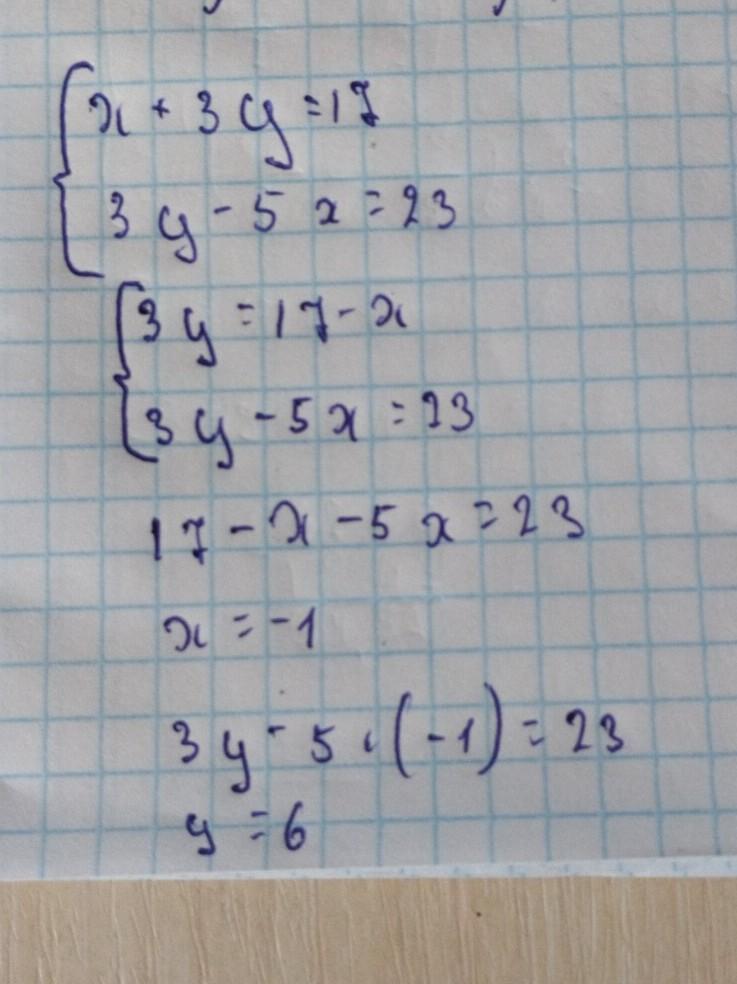 x + 3y = 17
3y - 5x = 23
3y = 17 - x
3y - 5x = 23
17 - x - 5x = 23
x = -1
3y - 5 · (-1) = 23
y = 6